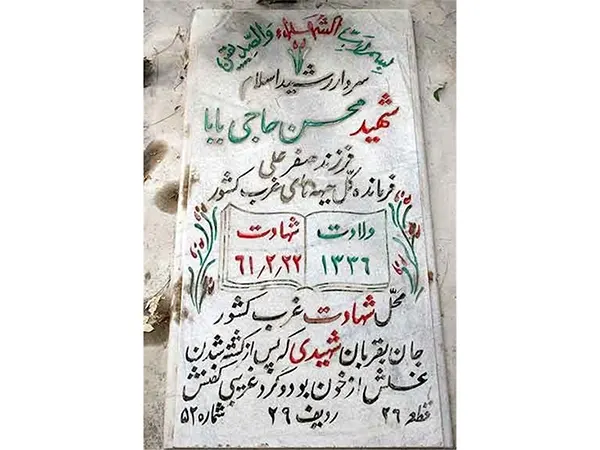 بسم رب الشهداء والصدیقین
سردار رشید اسلام
شهید محسن حاجی بابا
فرزند صفر علی
فرمانده کل جبهه های غرب کشور
ولادت
۱۳۳۶
شهادت
۶۱/۲/۲۲
محل شهادت غرب کشور
جان بقربان شهیدی که پس از کشته شدن
غسلش از خون بود و گرد غریبی کفنش
قطعه ۲۶ ردیف ۲۹ شماره ۵۲